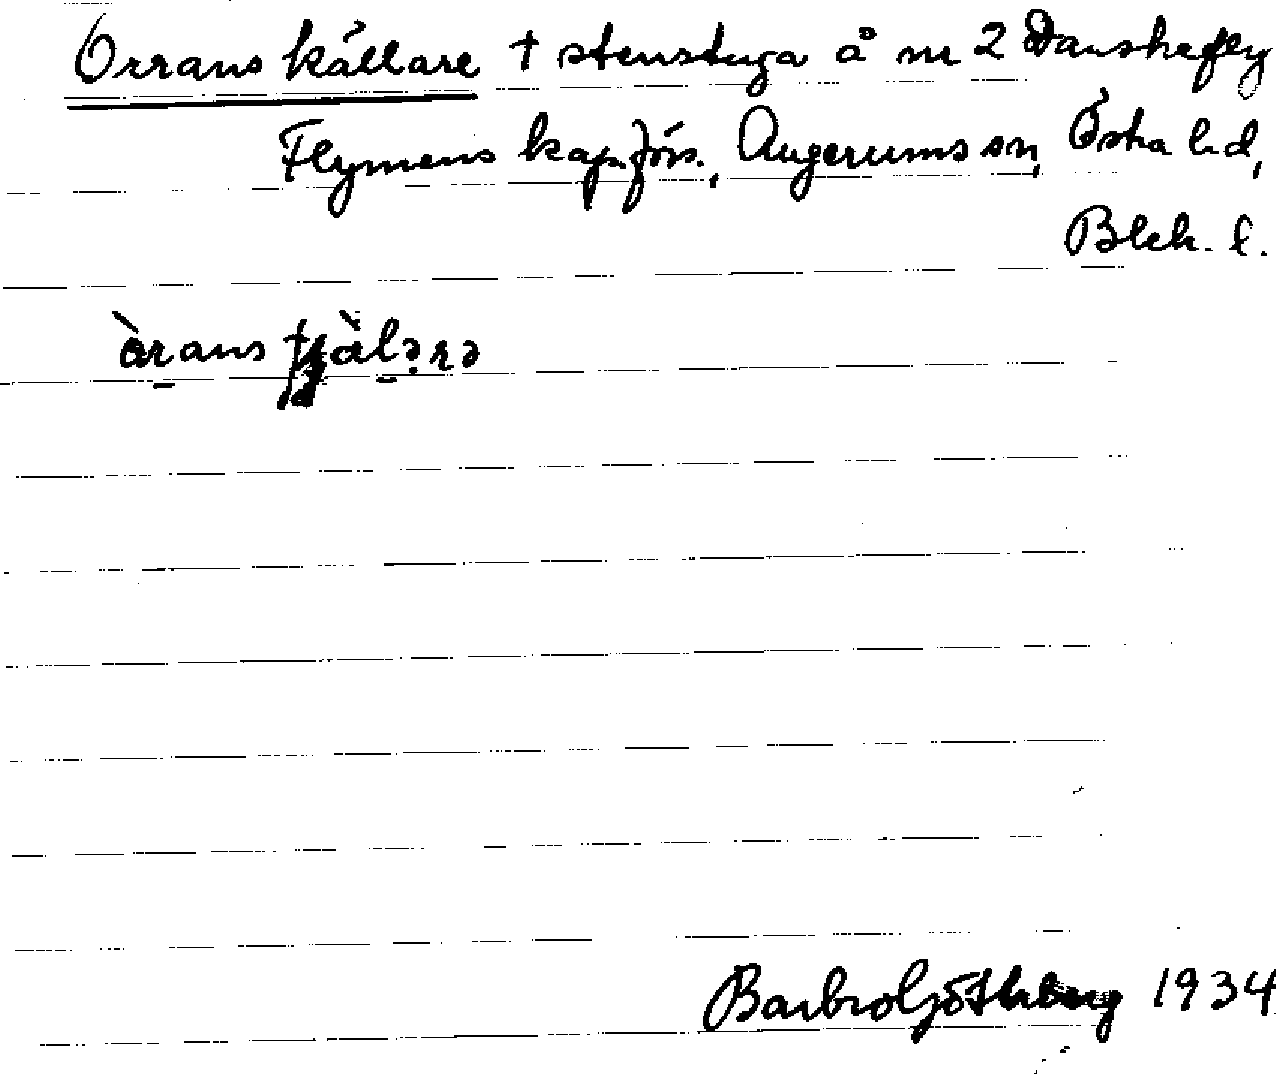 Orrans källare † stenstuga å nr 2 Danskefly
Flymens kap.förs., Augerums sn, Östra hd,
Blek. l.
àrans tjàlərə
Barbro Götherberg 1934